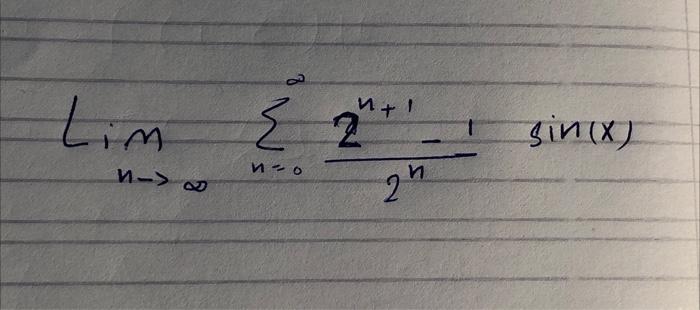 Lim n->∞ ∞ Σ n=0 2^(n+1) - 1 / 2^n sin(x)